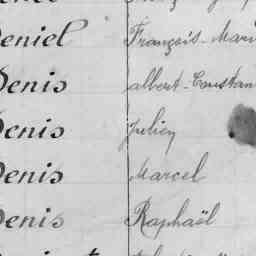 Deniel François-Mari
Denis albert-Constan
Denis Julien
Denis Marcel
Denis Raphaël